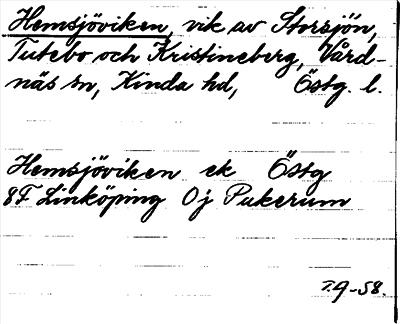 Hemsjöviken, vik av Storsjön,
Tutebo och Kristineberg, Vård-
näs sn, Kinda hd, Östg. l.
Hemsjöviken ek Östg
8F Linköping Oj Pukerum
T.9-58.